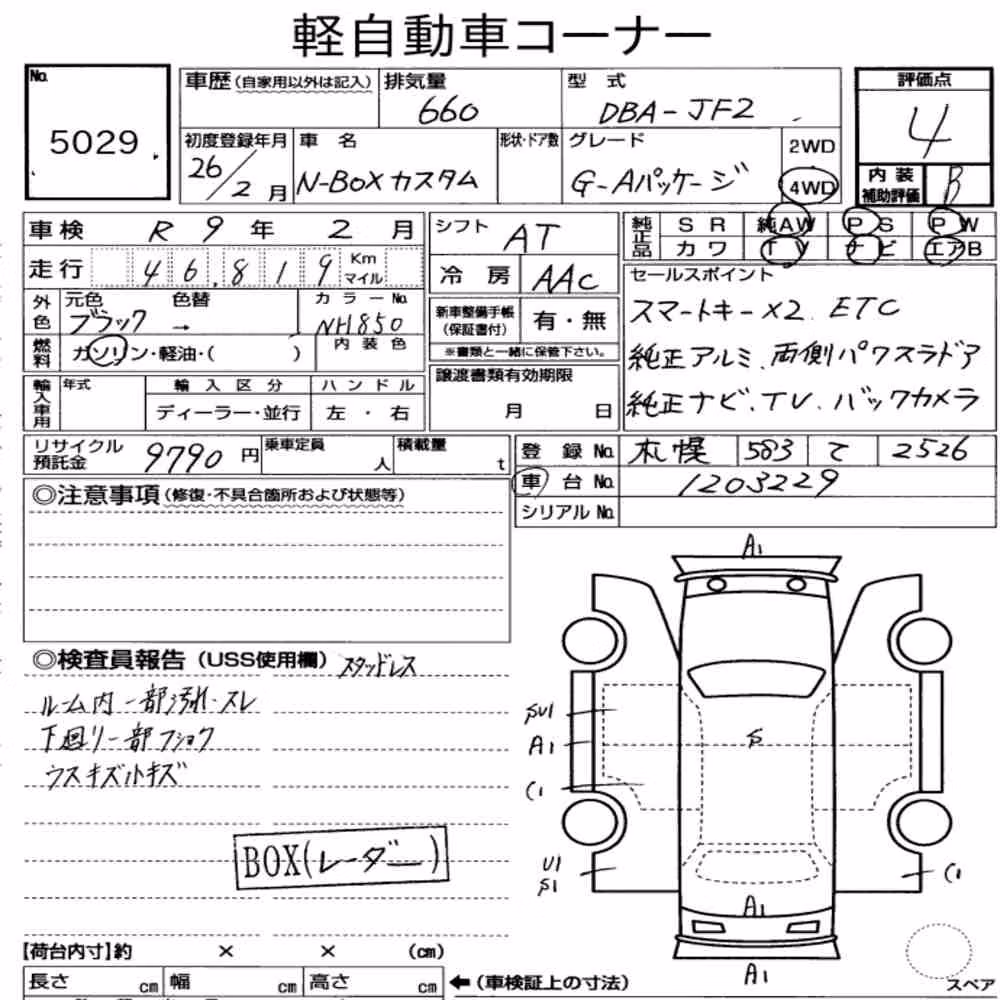 軽自動車コーナー
No. 5029
車歴(自家用以外は記入) 排気量 660 型式 DBA-JF2 評価点 4
初度登録年月 26/2月 車名 N-BOXカスタム 形状・ドア数 グレード G-Aパッケージ 2WD 4WD 内装補助評価 B
車検 R9年2月 シフト AT 純正品 SR 純AW PS PW
カワ TV ナビ エアB
走行 46,819 Km マイル 冷房 AAC
セールスポイント
スマートキー×2 ETC
純正アルミ、両側パワスラドア
純正ナビ、TV、バックカメラ
外色 元色 ブラック → 色替 カラーNo. NH850
新車整備手帳(保証書付) 有・無
※書類と一緒に保管下さい。
燃料 ガソリン・軽油・( ) 内装色
譲渡書類有効期限 月 日
輸入車用 年式 輸入区分 ハンドル
ディーラー・並行 左・右
リサイクル預託金 9790円 乗車定員 人 積載量 t
登録No. 札幌 583 て 2526
車台No. 1203229
シリアルNo.
◎注意事項(修復・不具合箇所および状態等)
◎検査員報告(USS使用欄) スタッドレス
ルーム内一部汚れ・スレ
下回り一部フショク
ウスキズ小キズ
BOX(レーダー)
A1
SU1
A1
S
C1
U1
S1
C1
A1
A1
スペア
【荷台内寸】約 × × (cm)
長さ cm 幅 cm 高さ cm ←(車検証上の寸法)